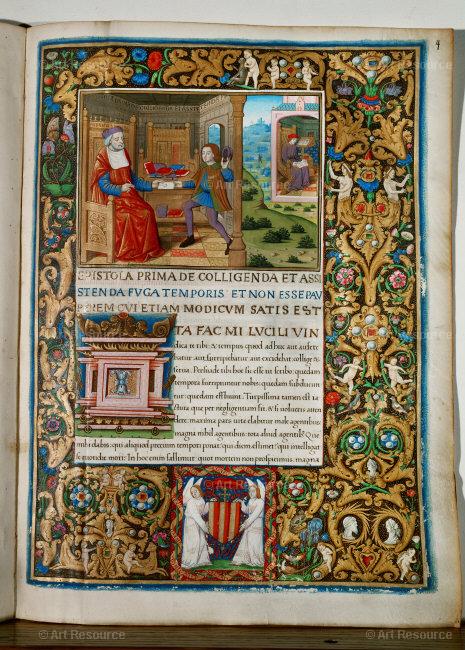 4
EPISTOLA PRIMA DE COLLIGENDA ET ASSI
STENDA FUGA TEMPORIS ET NON ESSE PAV
PEREM CVI ETIAM MODICVM SATIS EST
ITA FAC MI LVCILI VIN
dica te tibi: & tempus quod adhuc aut aufere
batur aut surripiebatur aut excidebat collige &
serua. Persuade tibi hoc sic esse ut scribo: quedam
tempora surripiuntur nobis: quedam subducun
tur: quedam effluunt. Turpissima tamen est ia
ctura que per negligentiam fit. & si uolueris atten
dere: maxima pars uite elabitur male agentibus:
magna nihil agentibus: tota aliud agentib. Que
mihi dabis: qui aliquod precium tempori ponat: qui diem estimet: qui intelligat
se quotidie mori: In hoc enim fallimur: quod mortem non prospicimus. magna
© Art Resource
© Art Resource
© Art Resource